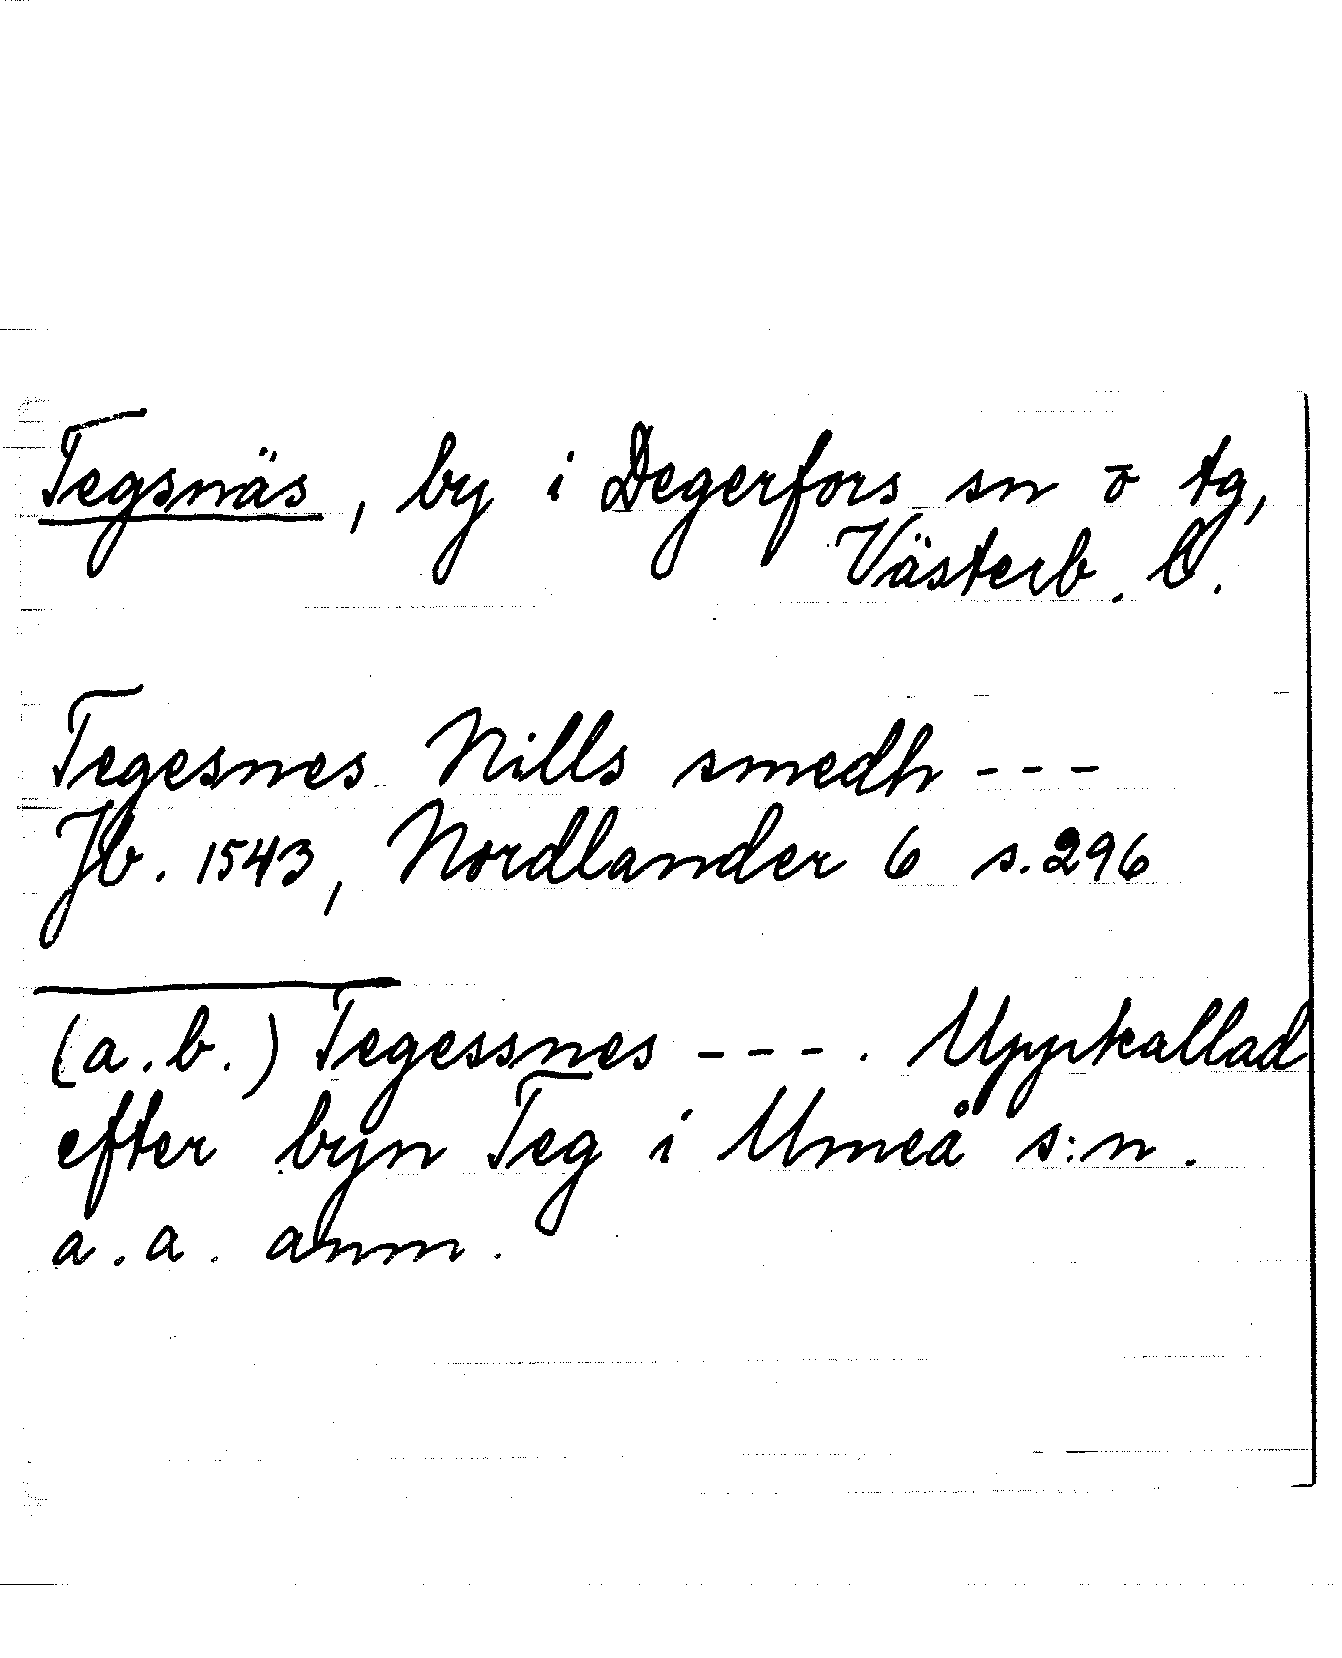 Tegsnäs, by i Degerfors sn o tg,
Västerb. l.
Tegesnes Nills smedh ---
Jb. 1543, Nordlander 6 s. 296
(a.b.) Tegessnes ---. Uppkallad
efter byn Teg i Umeå s:n.
a.a. anm.